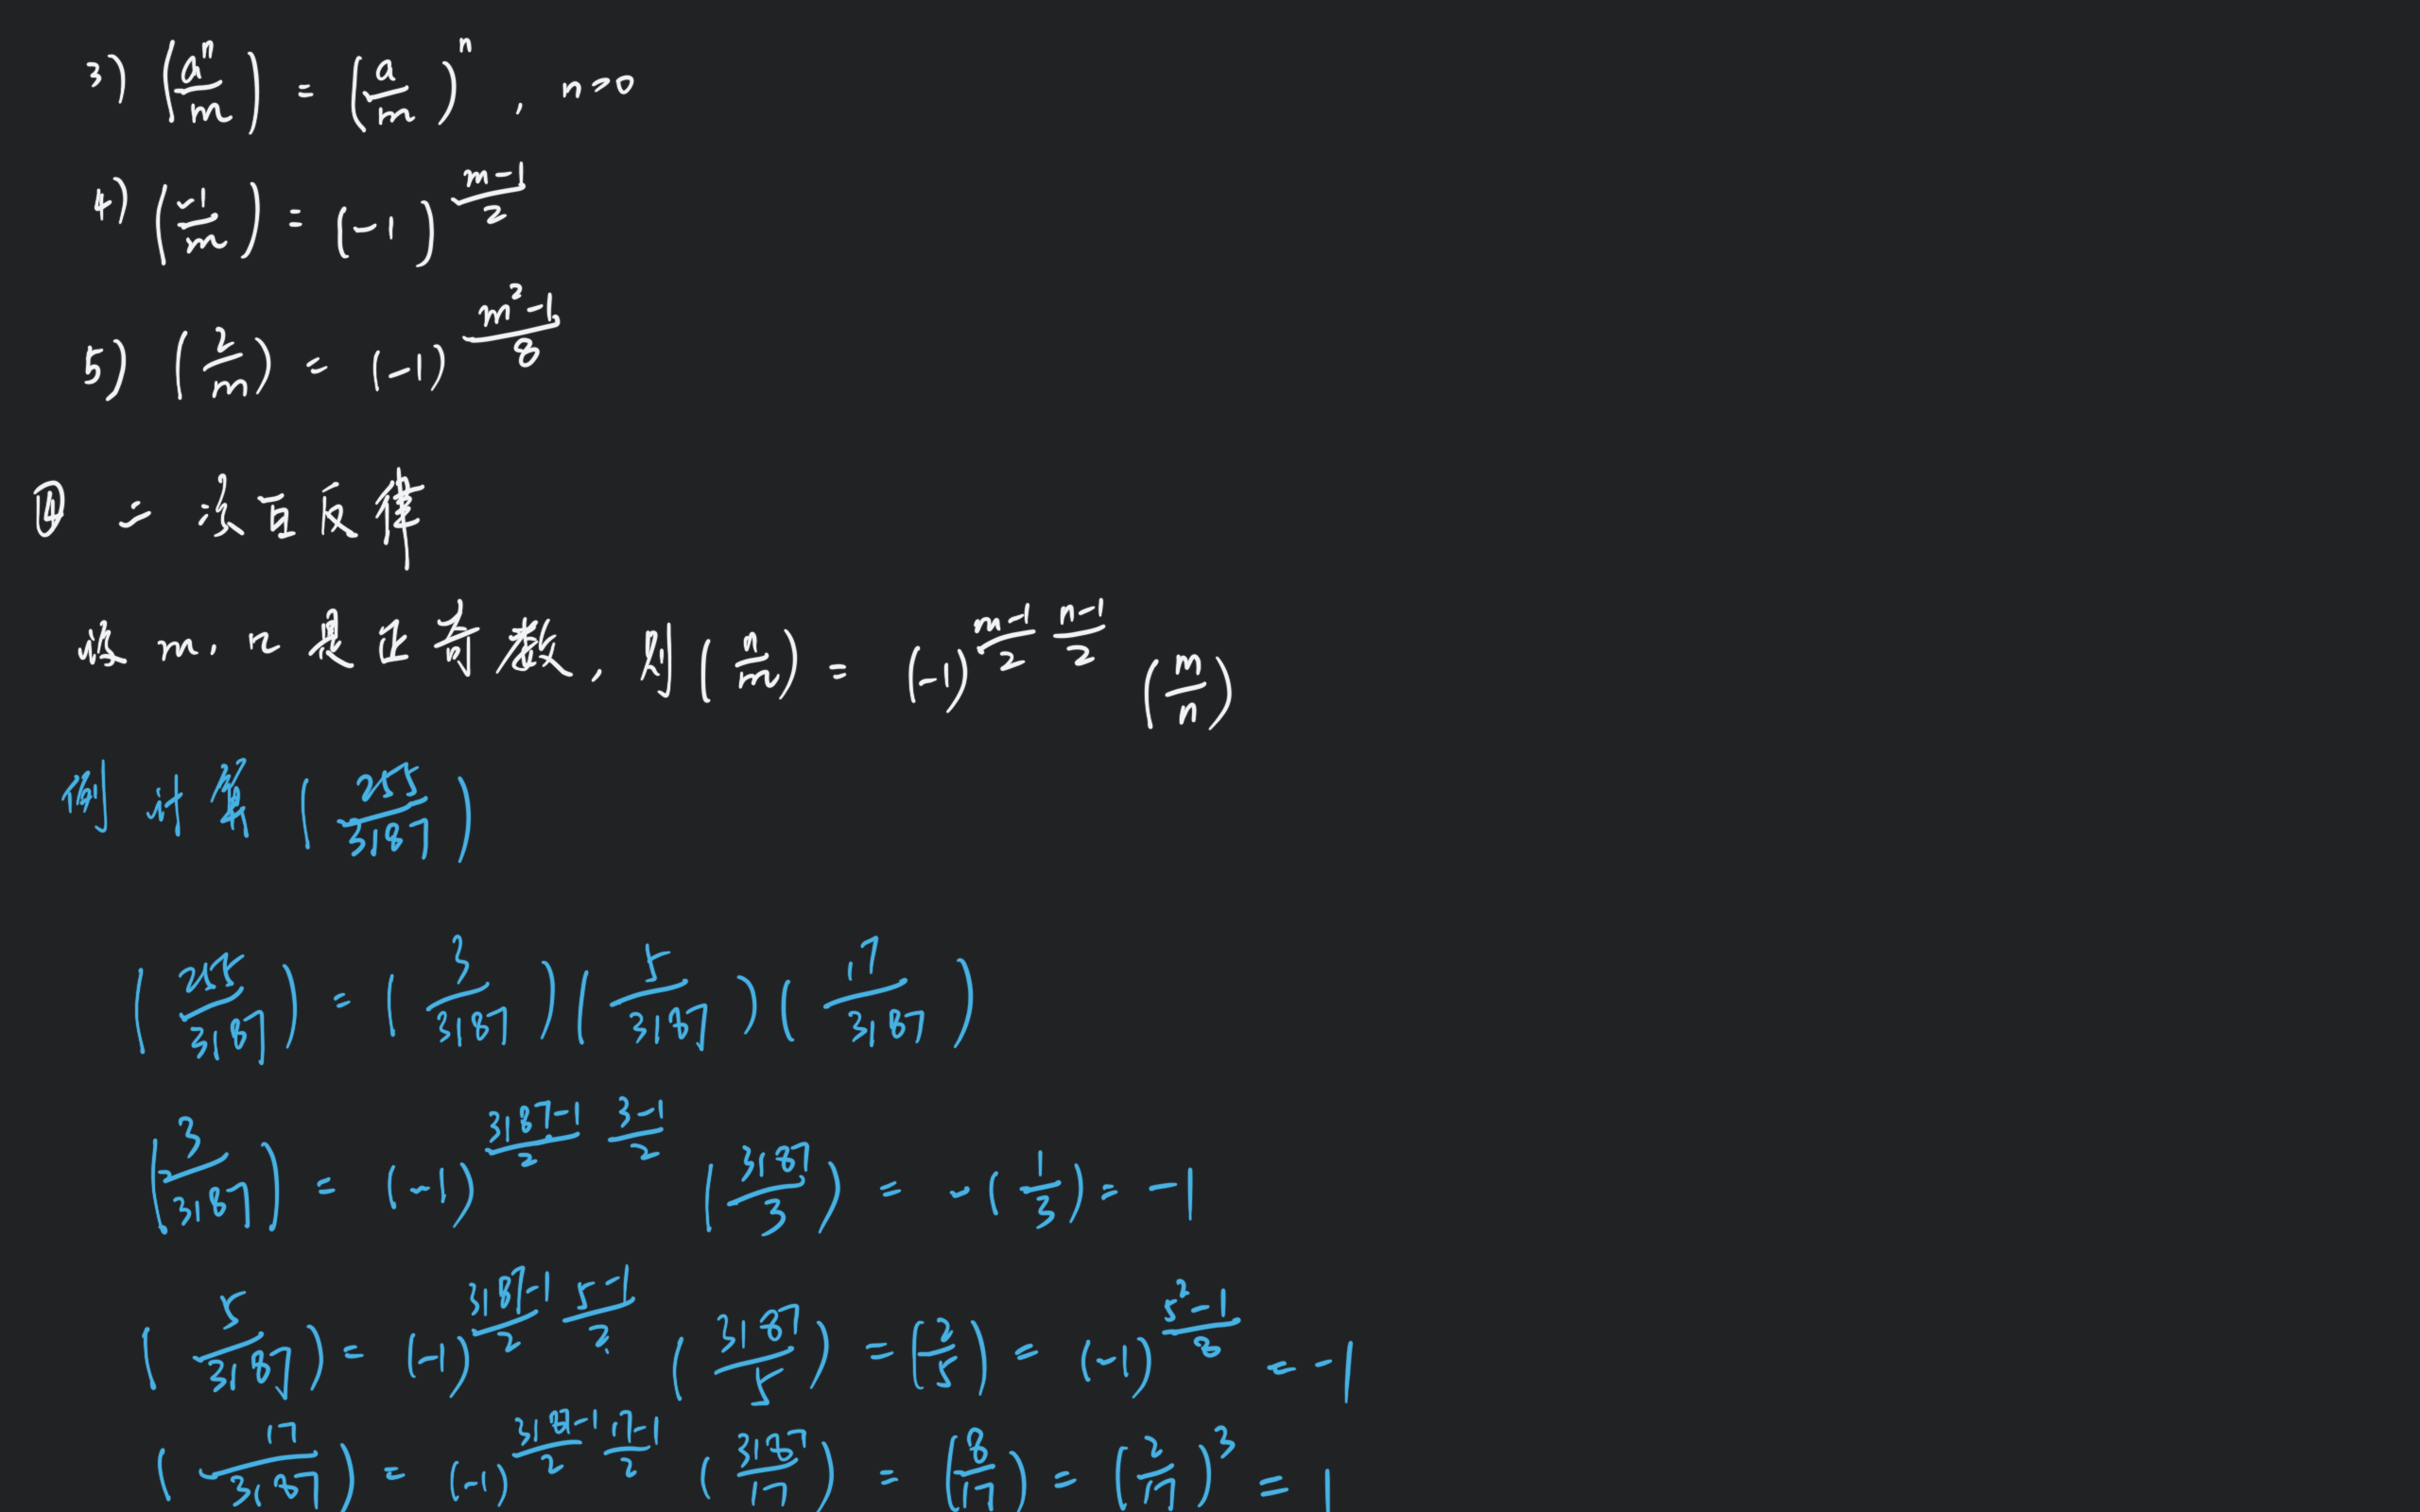 3) (a^n/m) = (a/m)^n , n>0
4) (-1/m) = (-1)^((m-1)/2)
5) (2/m) = (-1)^((m^2-1)/8)
④ 二次互反律
设 m, n 是正奇数, 则 (n/m) = (-1)^((m-1)/2 (n-1)/2) (m/n)
例 计算 (255/3187)
(255/3187) = (3/3187)(5/3187)(17/3187)
(3/3187) = (-1)^((3187-1)/2 (3-1)/2) (3187/3) = -(1/3) = -1
(5/3187) = (-1)^((3187-1)/2 (5-1)/2) (3187/5) = (2/5) = (-1)^((5^2-1)/8) = -1
(17/3187) = (-1)^((3187-1)/2 (17-1)/2) (3187/17) = (8/17) = (2/17)^3 = 1